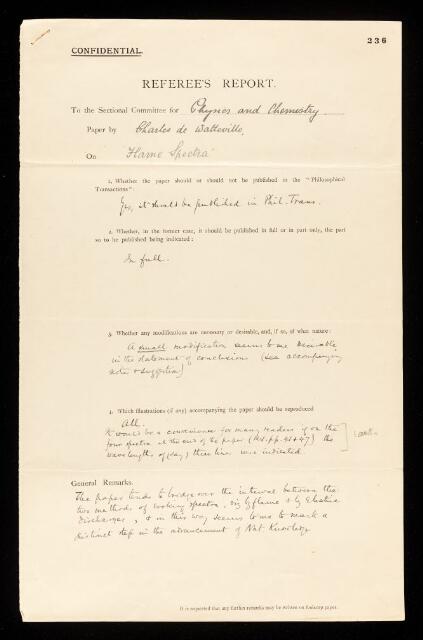 236
CONFIDENTIAL.
REFEREE'S REPORT.
To the Sectional Committee for Physics and Chemistry
Paper by Charles de Watteville,
On "Flame Spectra"
1. Whether the paper should or should not be published in the "Philosophical
Transactions":
Yes, it should be published in Phil. Trans.
2. Whether, in the former case, it should be published in full or in part only, the part
so to be published being indicated:
In full.
3. Whether any modifications are necessary or desirable, and, if so, of what nature:
A small modification seems to me desirable
in the statement of conclusions (see accompanying
notes & suggestion)
4. Which illustrations (if any) accompanying the paper should be reproduced
All.
It would be a convenience for many readers if on the
four spectra at the end of the paper (pp. 47) the
wavelengths of (say) three lines were indicated.
General Remarks.
The paper tends to bridge over the interval between the
two methods of working spectra, viz by flame & by Electric
discharges, & in this way seems to me to mark a
distinct step in the advancement of Nat. Knowledge
It is requested that any further remarks may be written on foolscap paper.